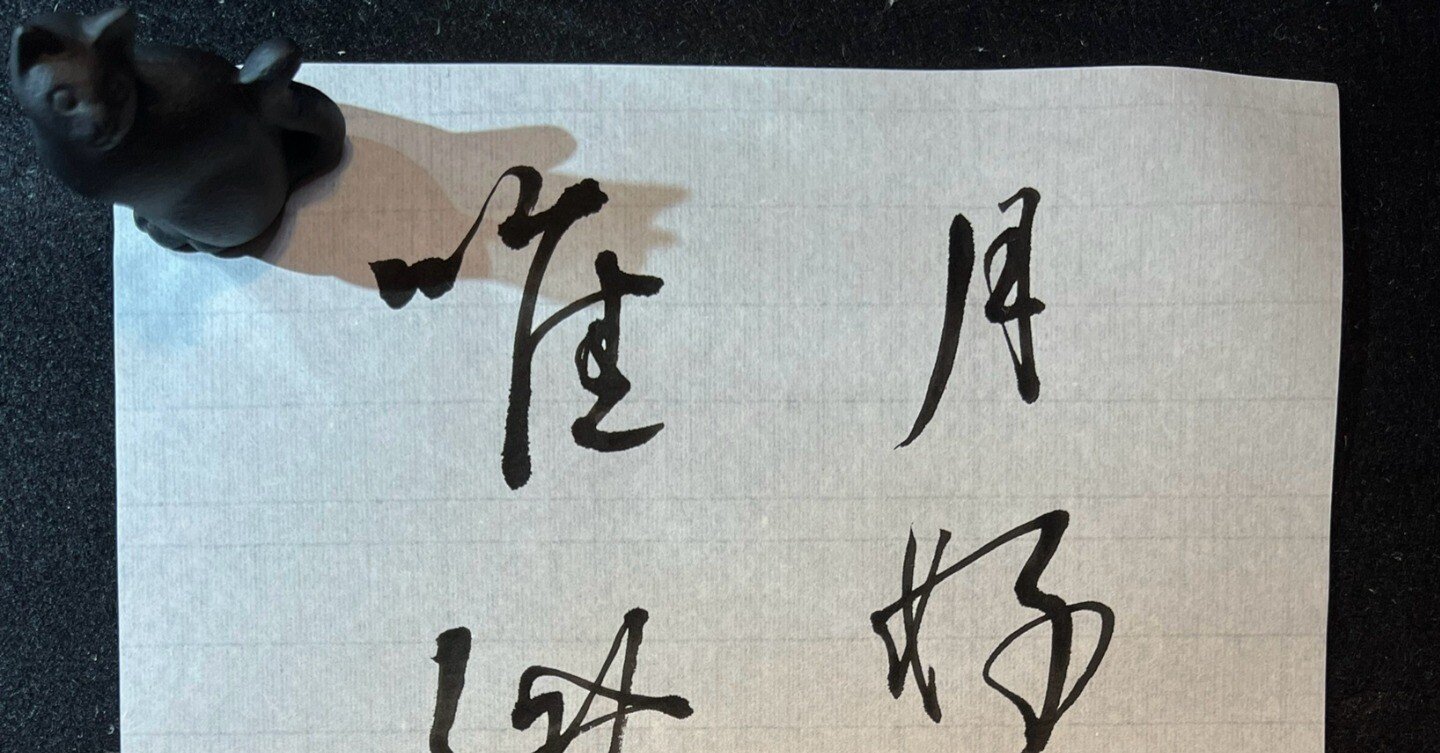 月好
唯